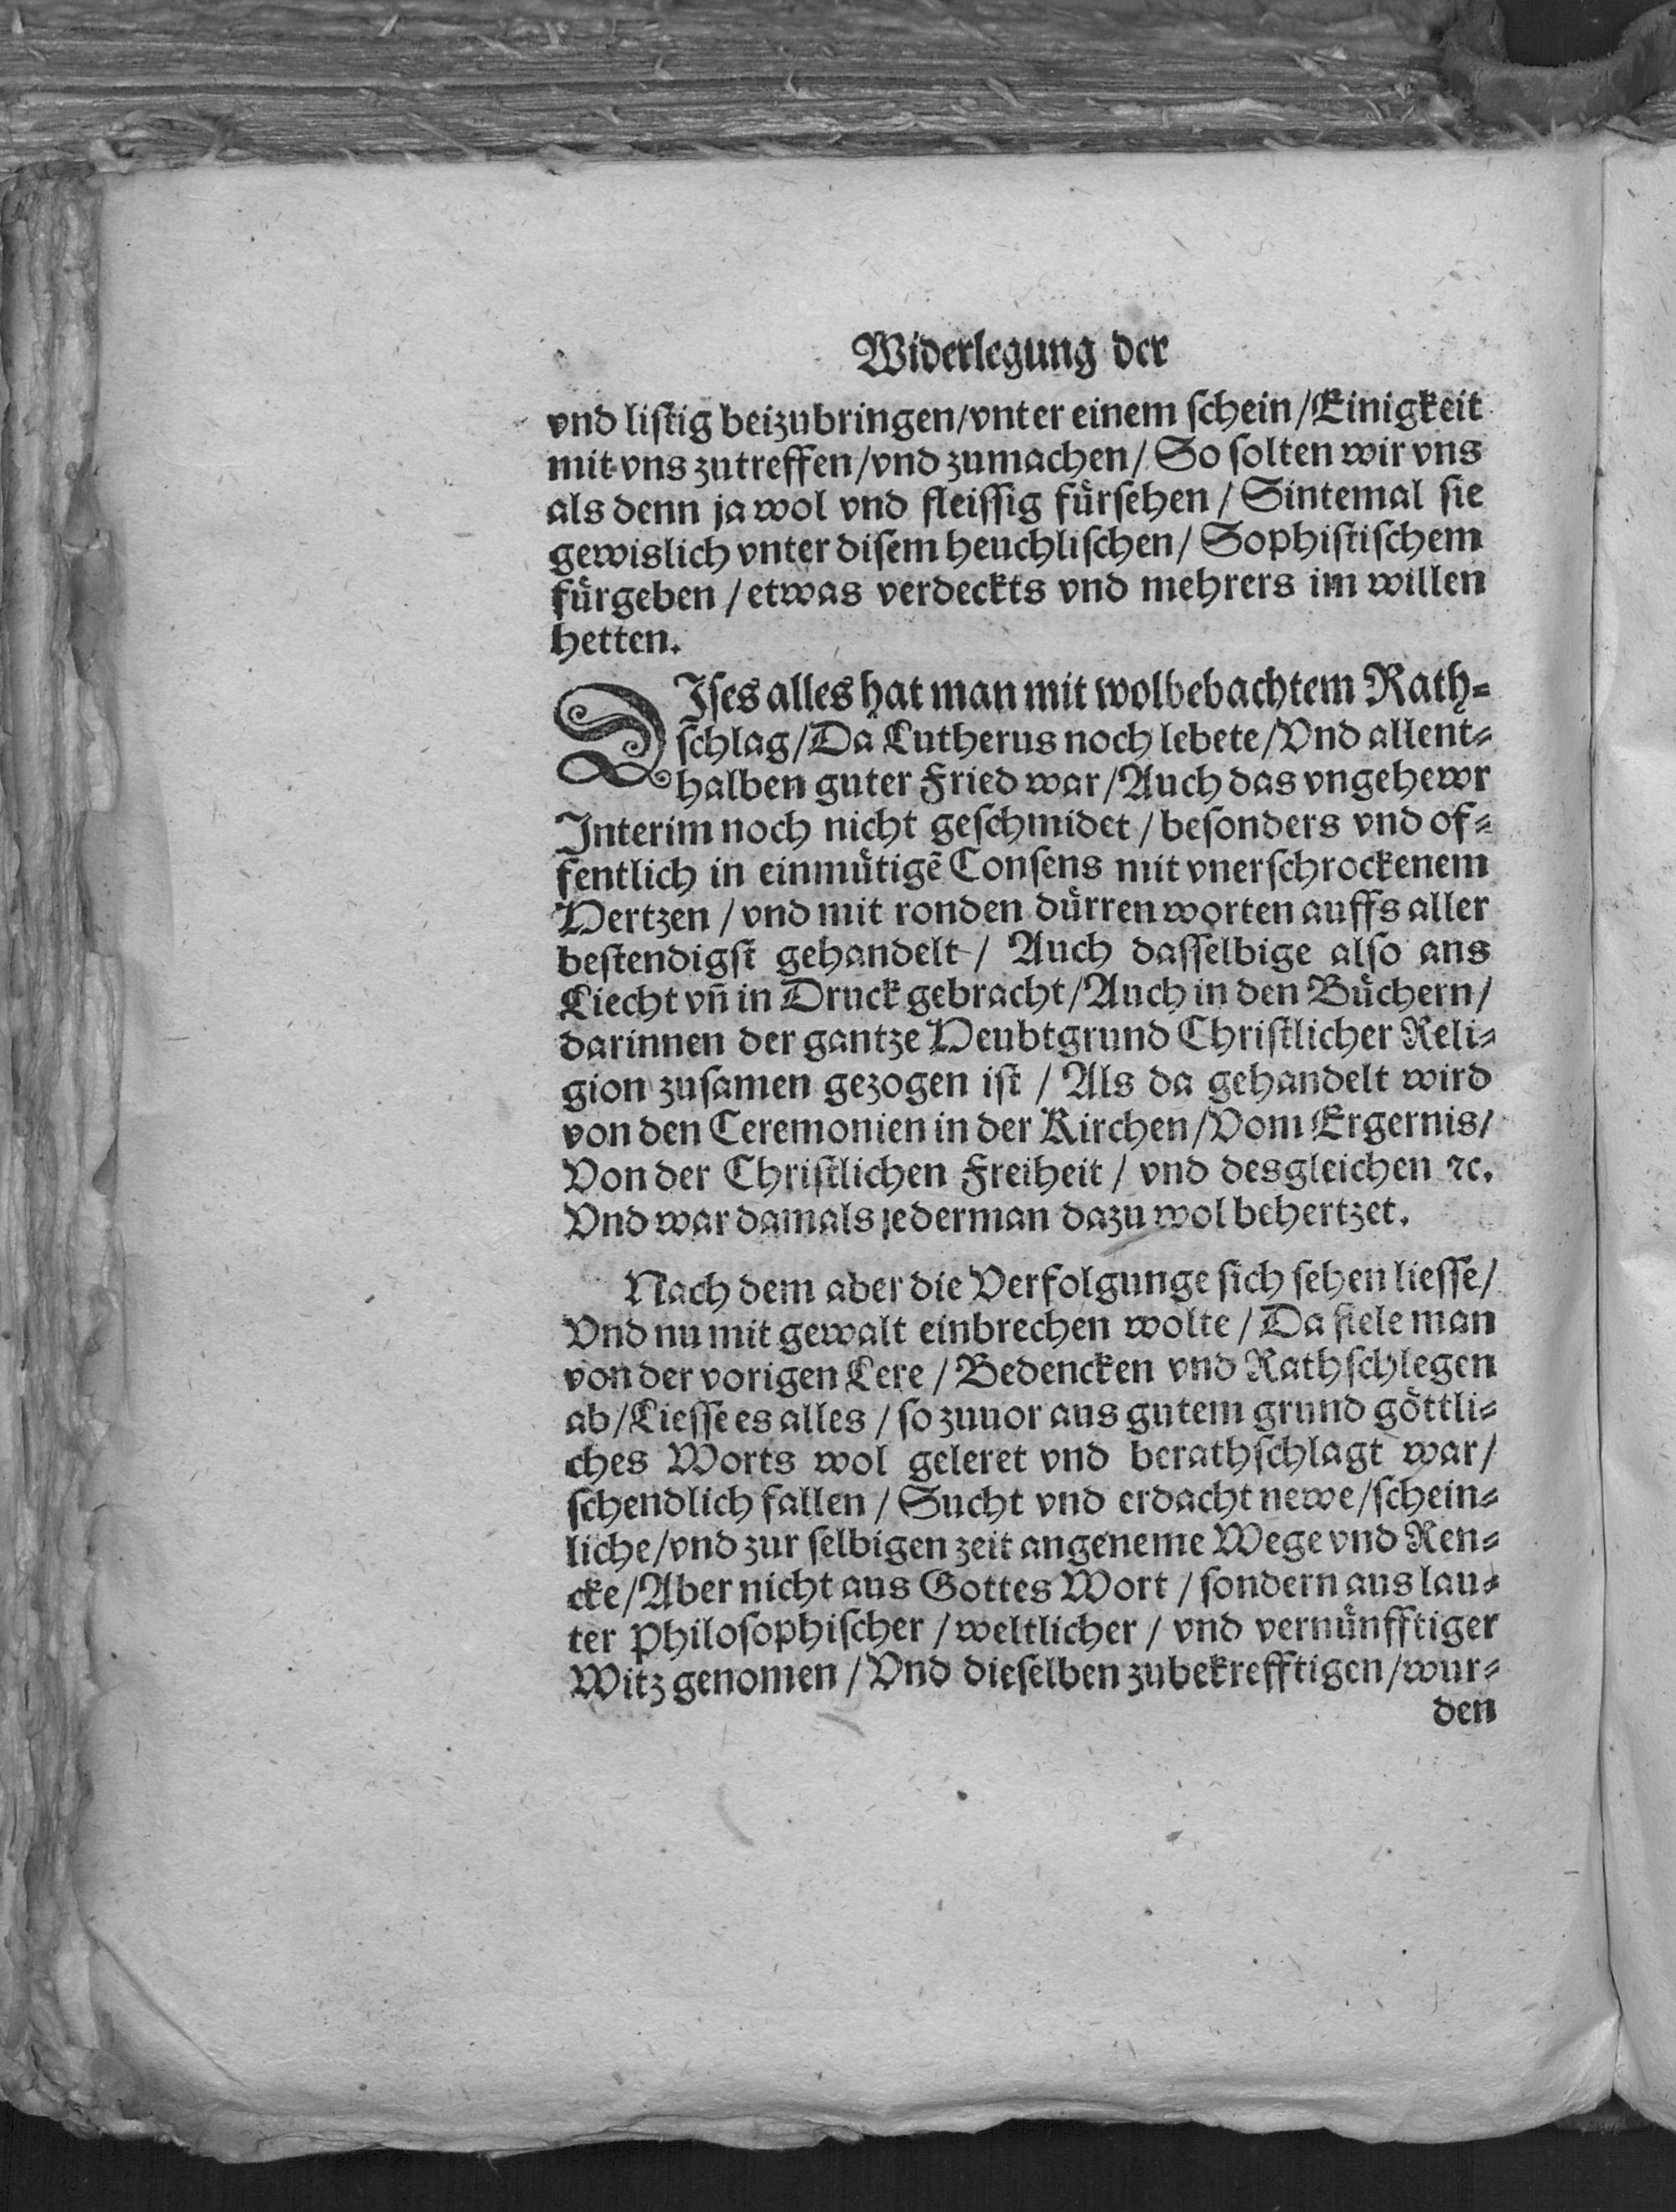 Widerlegung der
vnd liſtig beizubringen/vnter einem ſchein/Einigkeit
mit vns zutreffen/vnd zumachen/ So ſolten wir vns
als denn ja wol vnd fleiſſig fuͤrſehen / Sintemal ſie
gewislich vnter diſem heuchliſchen/ Sophiſtiſchem
fuͤrgeben / etwas verdeckts vnd mehrers im willen
hetten.
DIſes alles hat man mit wolbebachtem Rath⸗
ſchlag/Da Lutherus noch lebete/Vnd allent⸗
halben guter Fried war/Auch das vngehewr
Interim noch nicht geſchmidet / beſonders vnd of⸗
fentlich in einmuͤtigē Conſens mit vnerſchrockenem
Hertzen / vnd mit ronden duͤrren worten auffs aller
beſtendigſt gehandelt / Auch daſſelbige alſo ans
Liecht vn̄ in Druck gebracht/Auch in den Buͤchern/
darinnen der gantze Heubtgrund Chriſtlicher Reli⸗
gion zuſamen gezogen iſt / Als da gehandelt wird
von den Ceremonien in der Kirchen/Vom Ergernis/
Von der Chriſtlichen Freiheit / vnd desgleichen ꝛc.
Vnd war damals jederman dazu wol behertzet.
Nach dem aber die Verfolgunge ſich ſehen lieſſe/
Vnd nu mit gewalt einbrechen wolte / Da fiele man
von der vorigen Lere / Bedencken vnd Rathſchlegen
ab/Lieſſe es alles / ſo zuuor aus gutem grund goͤttli⸗
ches Worts wol geleret vnd berathſchlagt war/
ſchendlich fallen / Sucht vnd erdacht newe/ſchein⸗
liche/vnd zur ſelbigen zeit angeneme Wege vnd Ren⸗
cke/Aber nicht aus Gottes Wort / ſondern aus lau⸗
ter Philoſophiſcher / weltlicher / vnd vernuͤnfftiger
Witz genomen / Vnd dieſelben zubekrefftigen/wur⸗
den